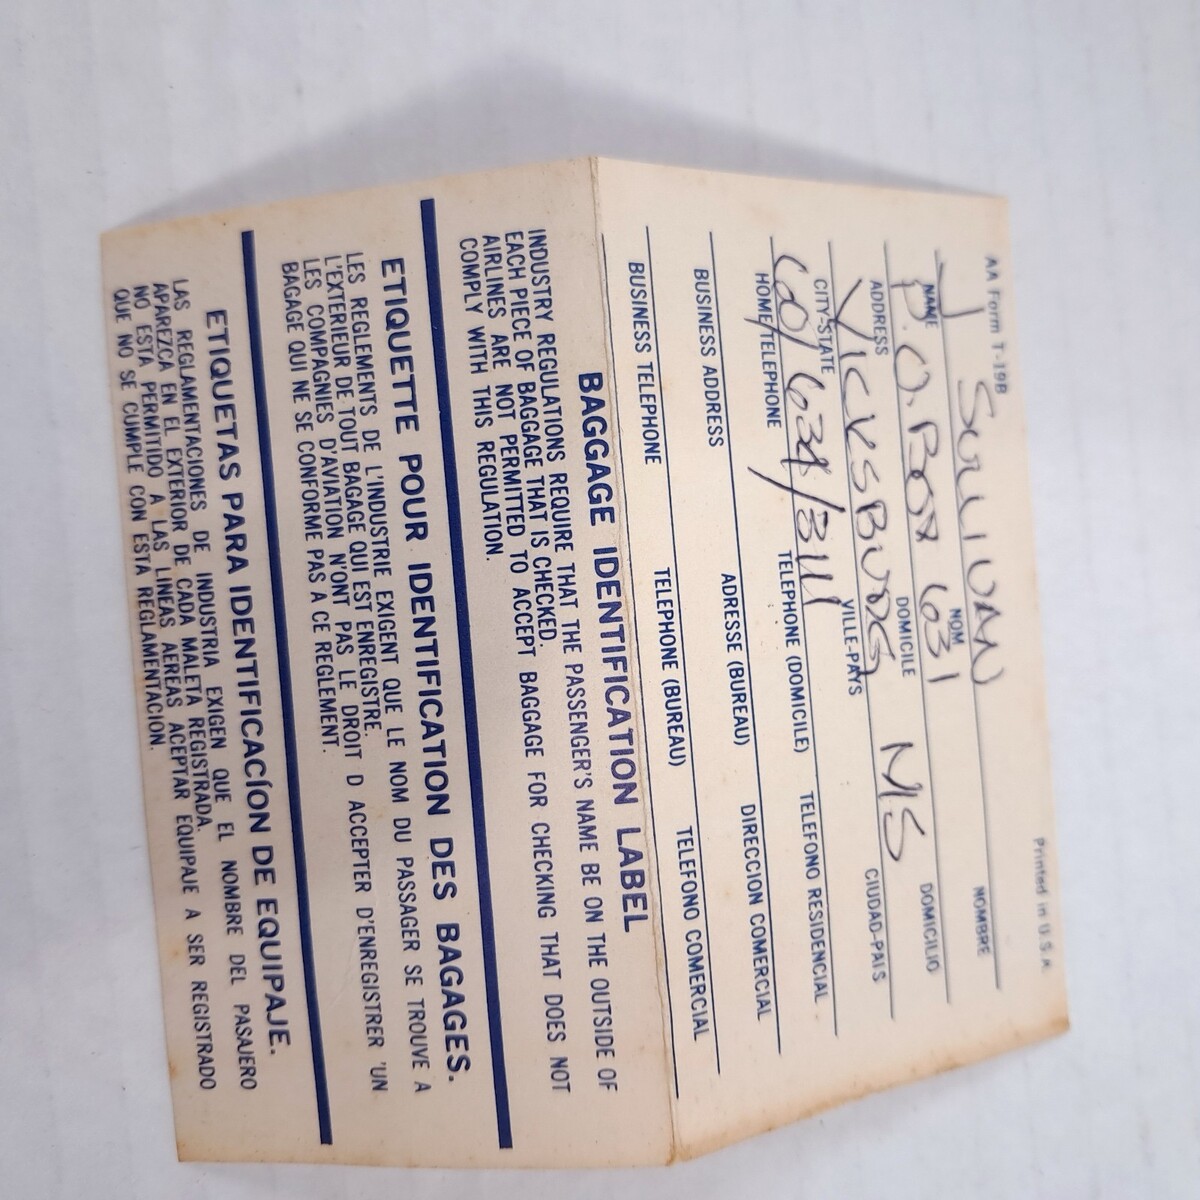 AA Form T-19B Printed in U.S.A.
J SULLIVAN
NAME NOM NOMBRE
P.O. BOX 631
ADDRESS DOMICILE DOMICILIO
VICKSBURG MS
CITY-STATE VILLE-PAYS CIUDAD-PAIS
601/634/
HOME TELEPHONE TELEPHONE (DOMICILE) TELEFONO RESIDENCIAL
BUSINESS ADDRESS ADRESSE (BUREAU) DIRECCION COMERCIAL
BUSINESS TELEPHONE TELEPHONE (BUREAU) TELEFONO COMERCIAL
BAGGAGE IDENTIFICATION LABEL
INDUSTRY REGULATIONS REQUIRE THAT THE PASSENGER'S NAME BE ON THE OUTSIDE OF
EACH PIECE OF BAGGAGE THAT IS CHECKED.
AIRLINES ARE NOT PERMITTED TO ACCEPT BAGGAGE FOR CHECKING THAT DOES NOT
COMPLY WITH THIS REGULATION.
ETIQUETTE POUR IDENTIFICATION DES BAGAGES.
LES REGLEMENTS DE L'INDUSTRIE EXIGENT QUE LE NOM DU PASSAGER SE TROUVE A
L'EXTERIEUR DE TOUT BAGAGE QUI EST ENREGISTRE.
LES COMPAGNIES D'AVIATION N'ONT PAS LE DROIT D ACCEPTER D'ENREGISTRER 'UN
BAGAGE QUI NE SE CONFORME PAS A CE REGLEMENT.
ETIQUETAS PARA IDENTIFICACÍON DE EQUIPAJE.
LAS REGLAMENTACIONES DE INDUSTRIA EXIGEN QUE EL NOMBRE DEL PASAJERO
APAREZCA EN EL EXTERIOR DE CADA MALETA REGISTRADA.
NO ESTA PERMITIDO A LAS LINEAS AEREAS ACEPTAR EQUIPAJE A SER REGISTRADO
QUE NO SE CUMPLE CON ESTA REGLAMENTACION.